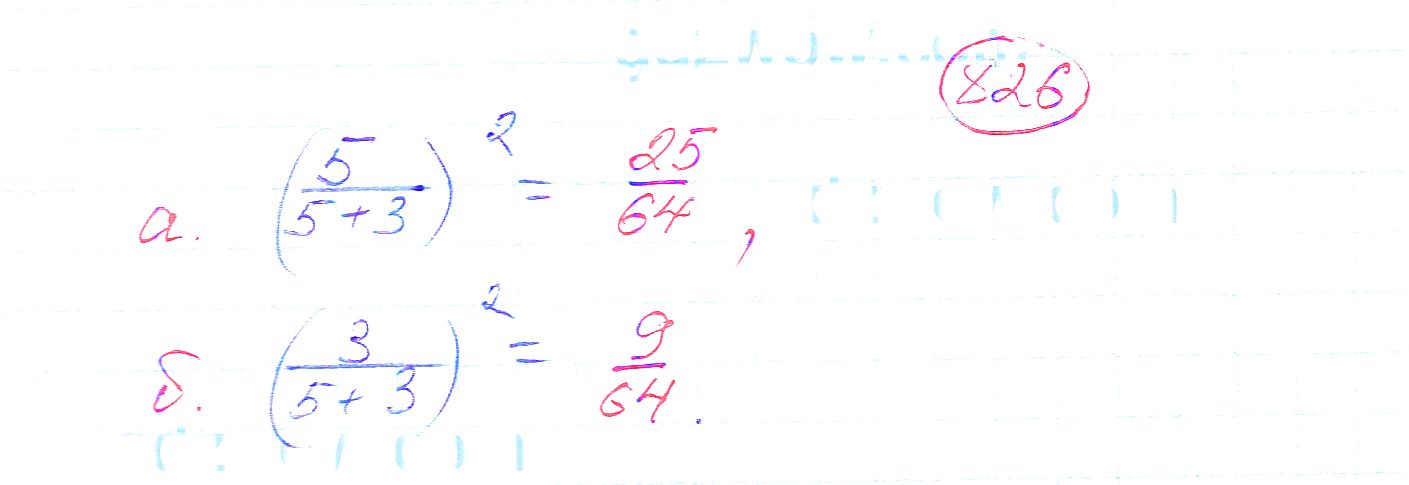 826
а. (5/(5+3))² = 25/64,
б. (3/(5+3))² = 9/64.